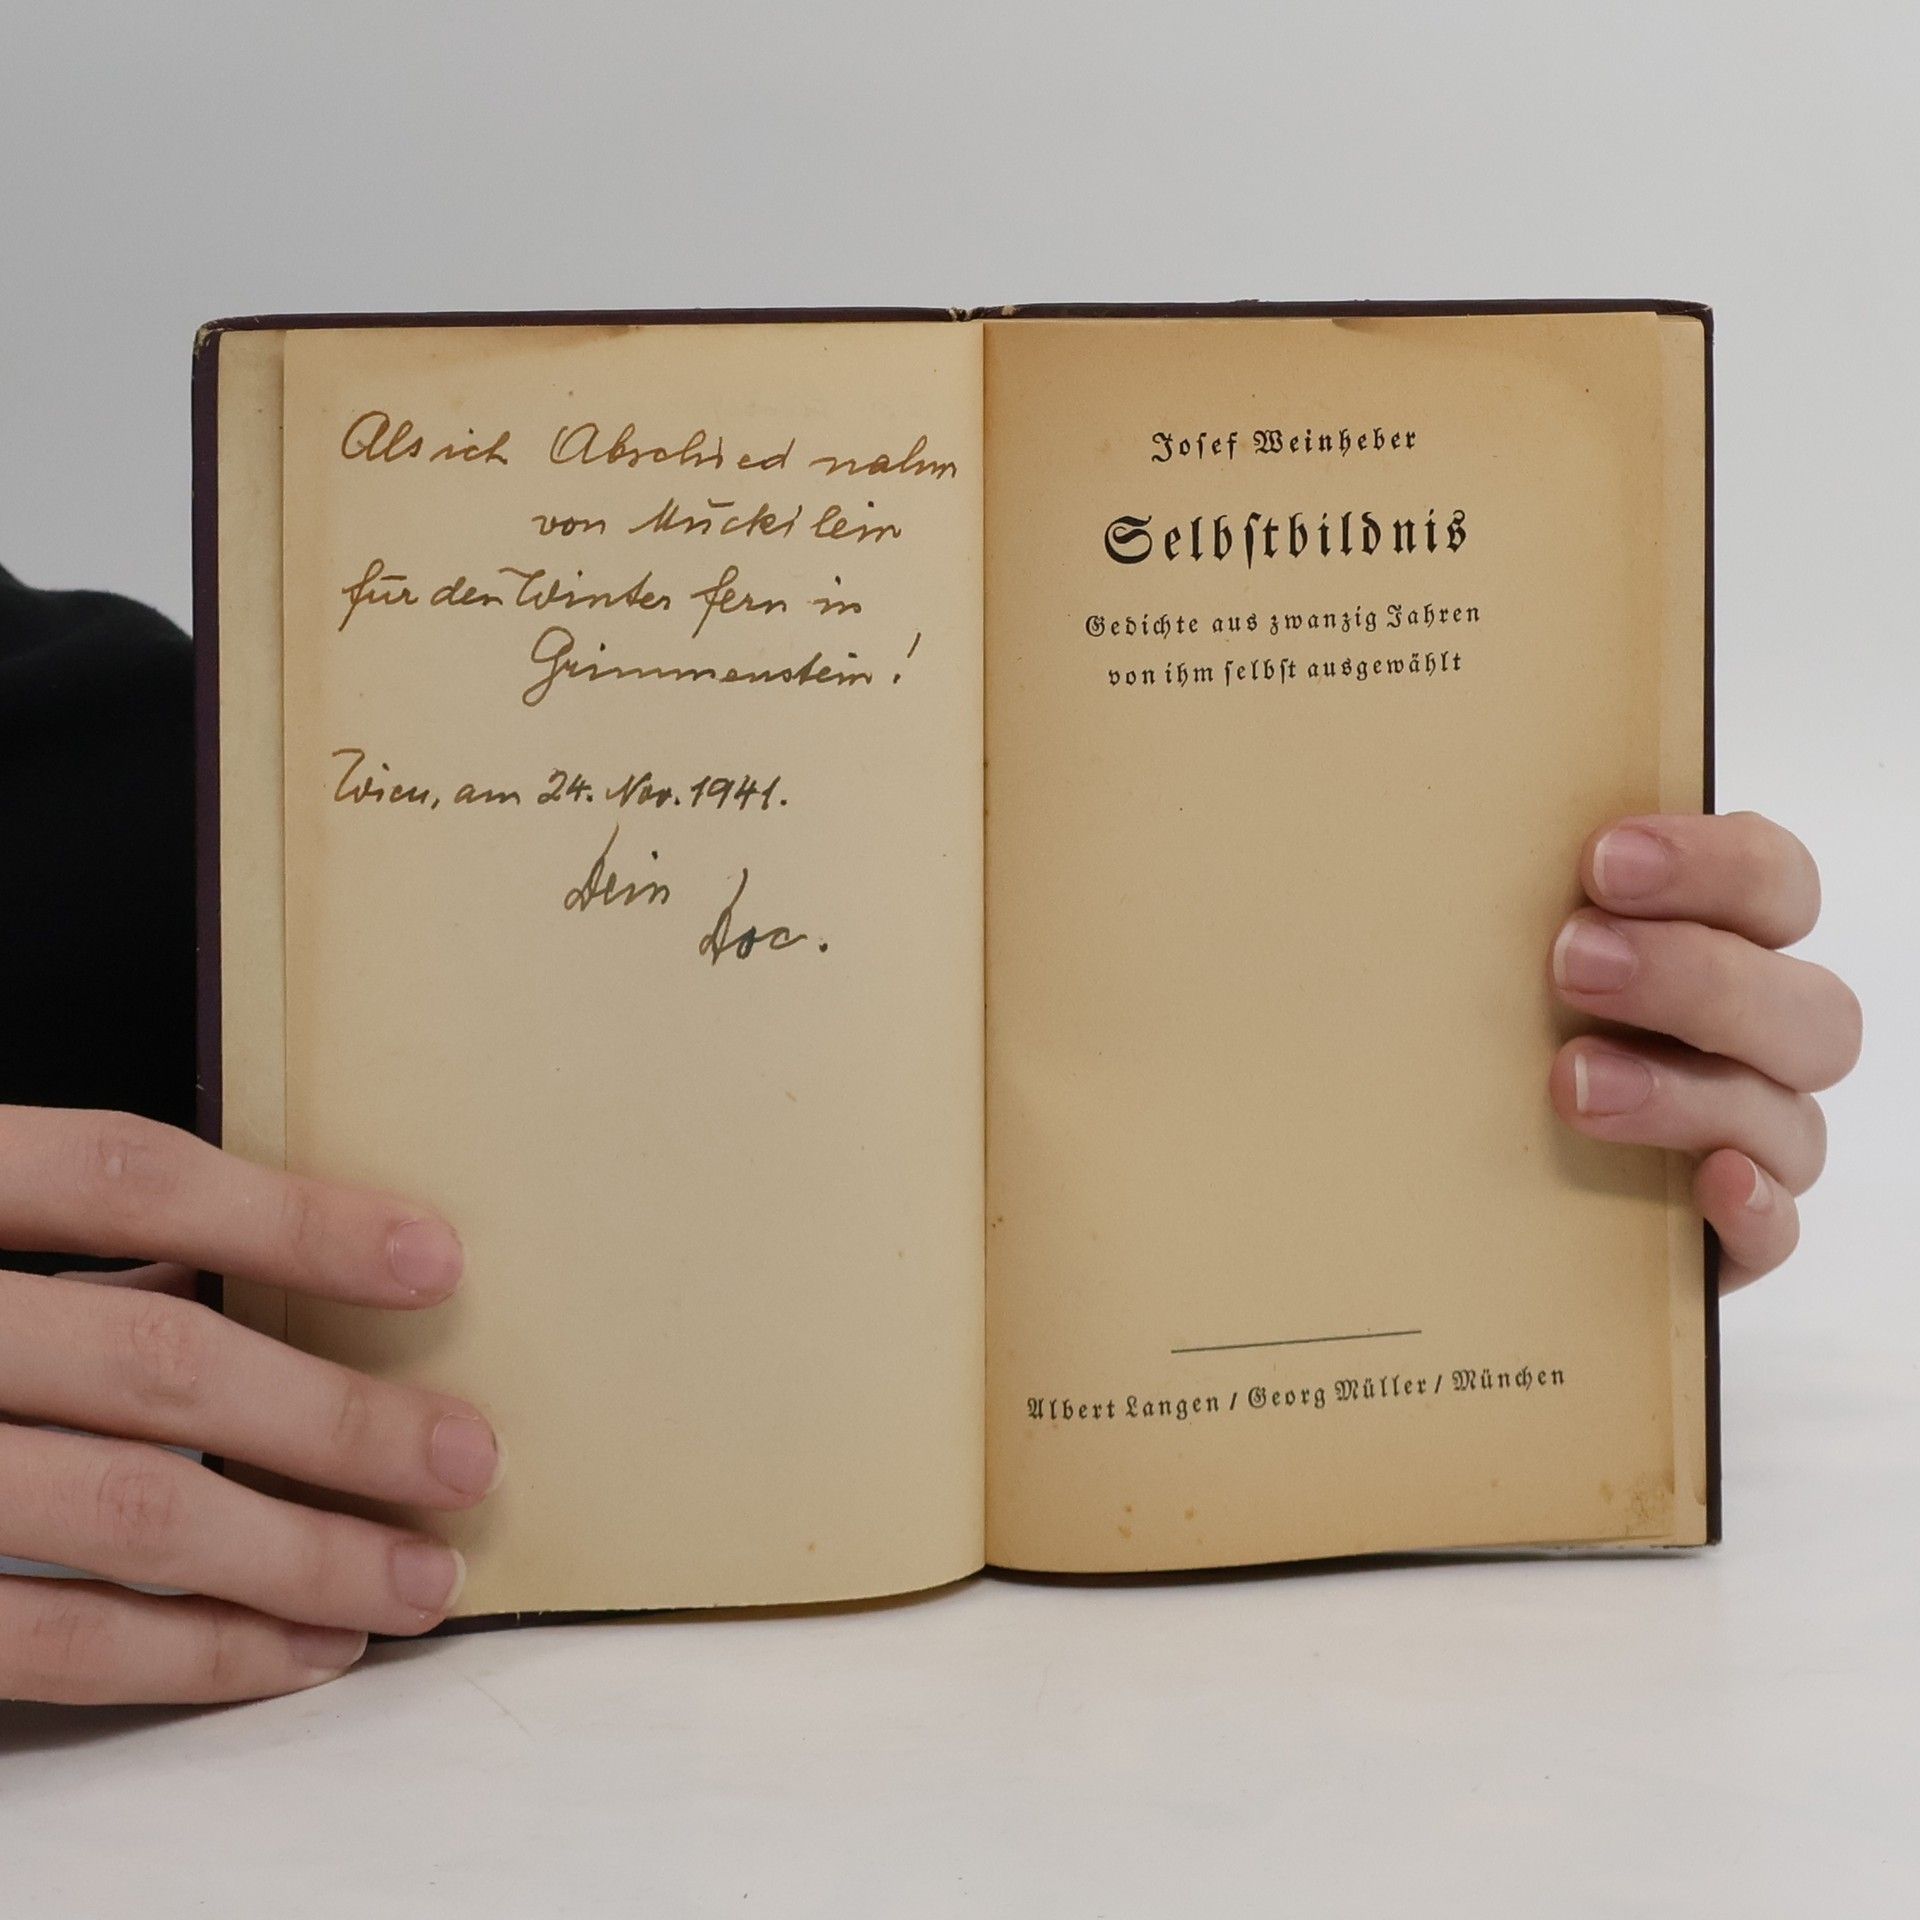 Als ich Abschied nahm
von Muckilein
für den Winter fern in
Grimmenstein!
Wien, am 24. Nov. 1941.
Dein
Doc.
Joſef Weinheber
Selbſtbildnis
Gedichte aus zwanzig Jahren
von ihm ſelbſt ausgewählt
Albert Langen / Georg Müller / München